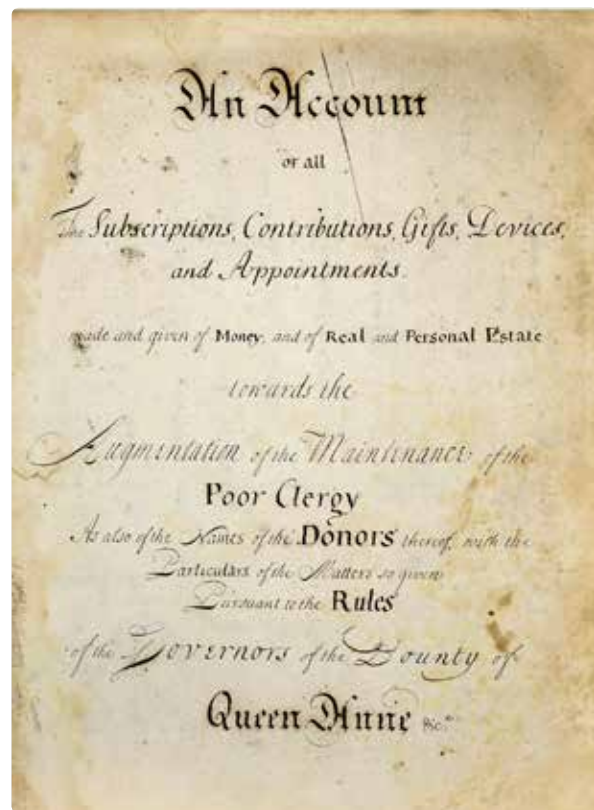 An Account
of all
The Subscriptions, Contributions, Gifts, Devices,
and Appointments.
made and given of Money, and of Real and Personal Estate
towards the
Augmentation of the Maintenance of the
Poor Clergy
As also of the Names of the Donors thereof, with the
Particulars of the Matters so given
Pursuant to the Rules
of the Governors of the Bounty of
Queen Anne &c.a